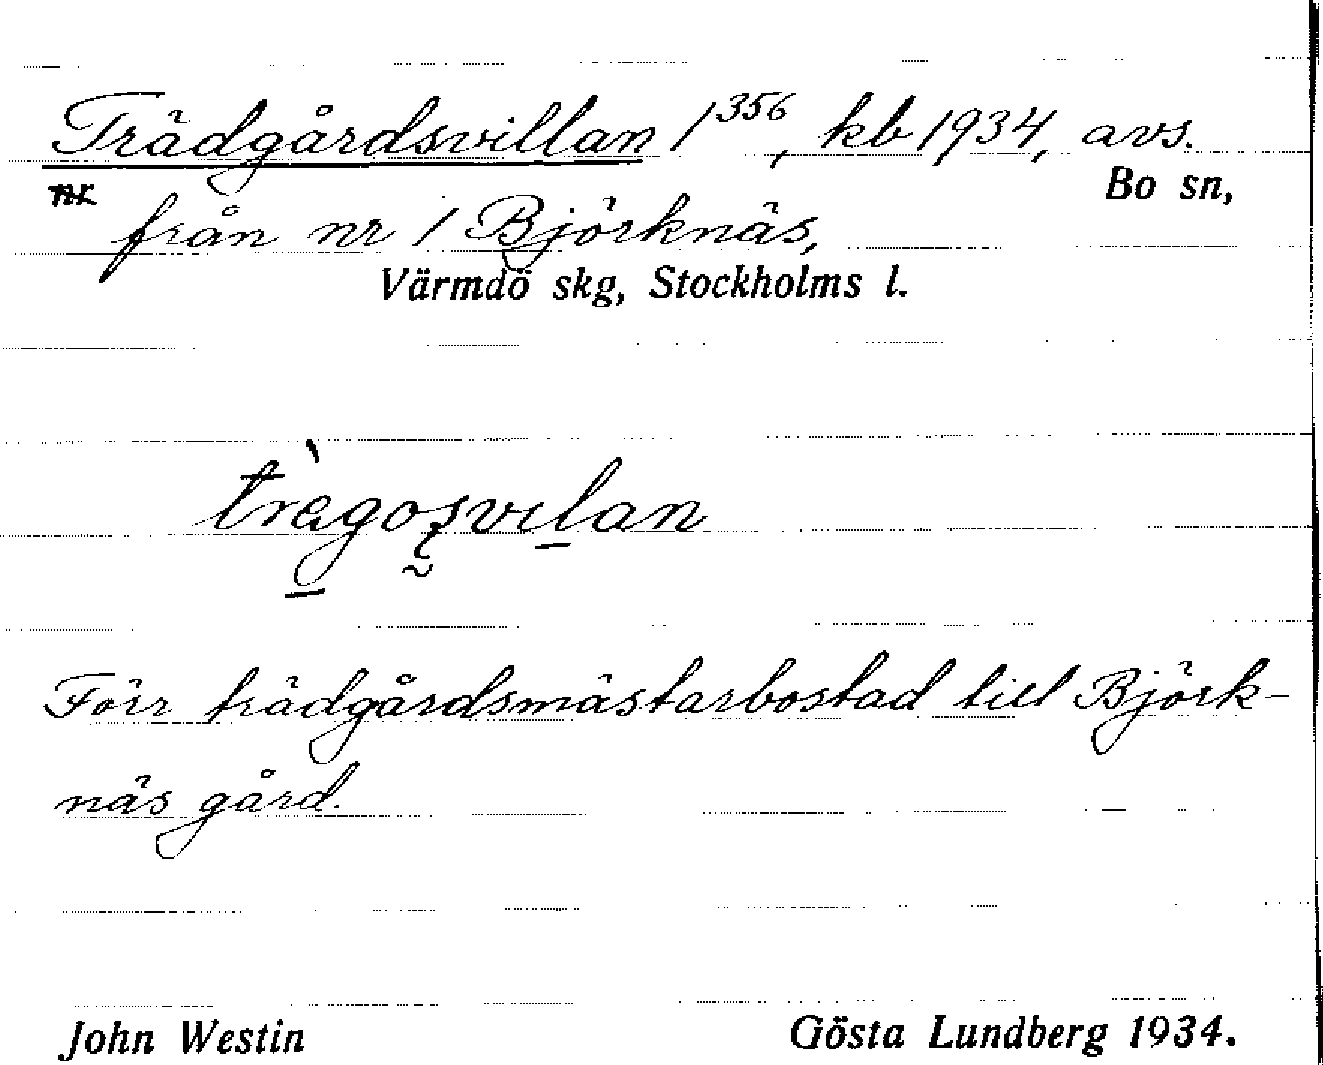 Trädgårdsvillan 1356, kb 1934, avs.
Bo sn,
från nr 1 Björknäs,
Värmdö skg, Stockholms l.
Förr trädgårdsmästarbostad till Björk-
näs gård.
John Westin Gösta Lundberg 1934.